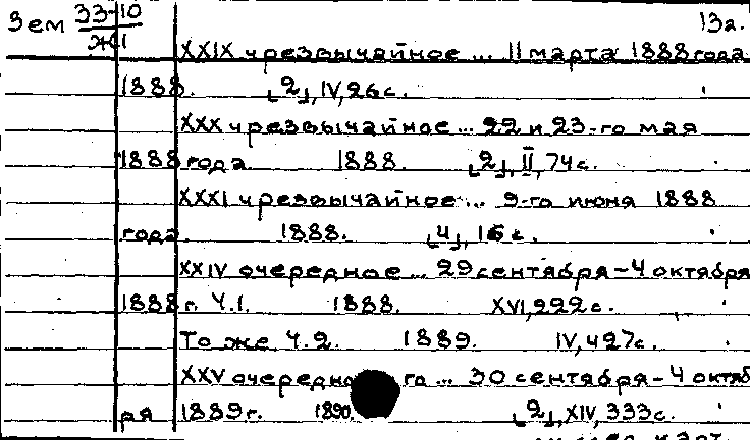 Зем 33-10 13а.
Ж1
XXIX чрезвычайное ... 11 марта 1888 года
1888. [2], IV, 26 с.
XXX чрезвычайное ... 22 и 23-го мая
1888 года 1888. [2], II, 74 с.
XXXI чрезвычайное ... 9-го июня 1888
года 1888. [4], 16 с.
XXIV очередное ... 29 сентября-4 октября
1888 г. Ч.1. 1888. XVI, 222 с.
То же Ч.2. 1889. IV, 427 с.
XXV очередно го ... 30 сентября-4 октяб
ря 1889 г. 1890. [2], XIV, 333 с.